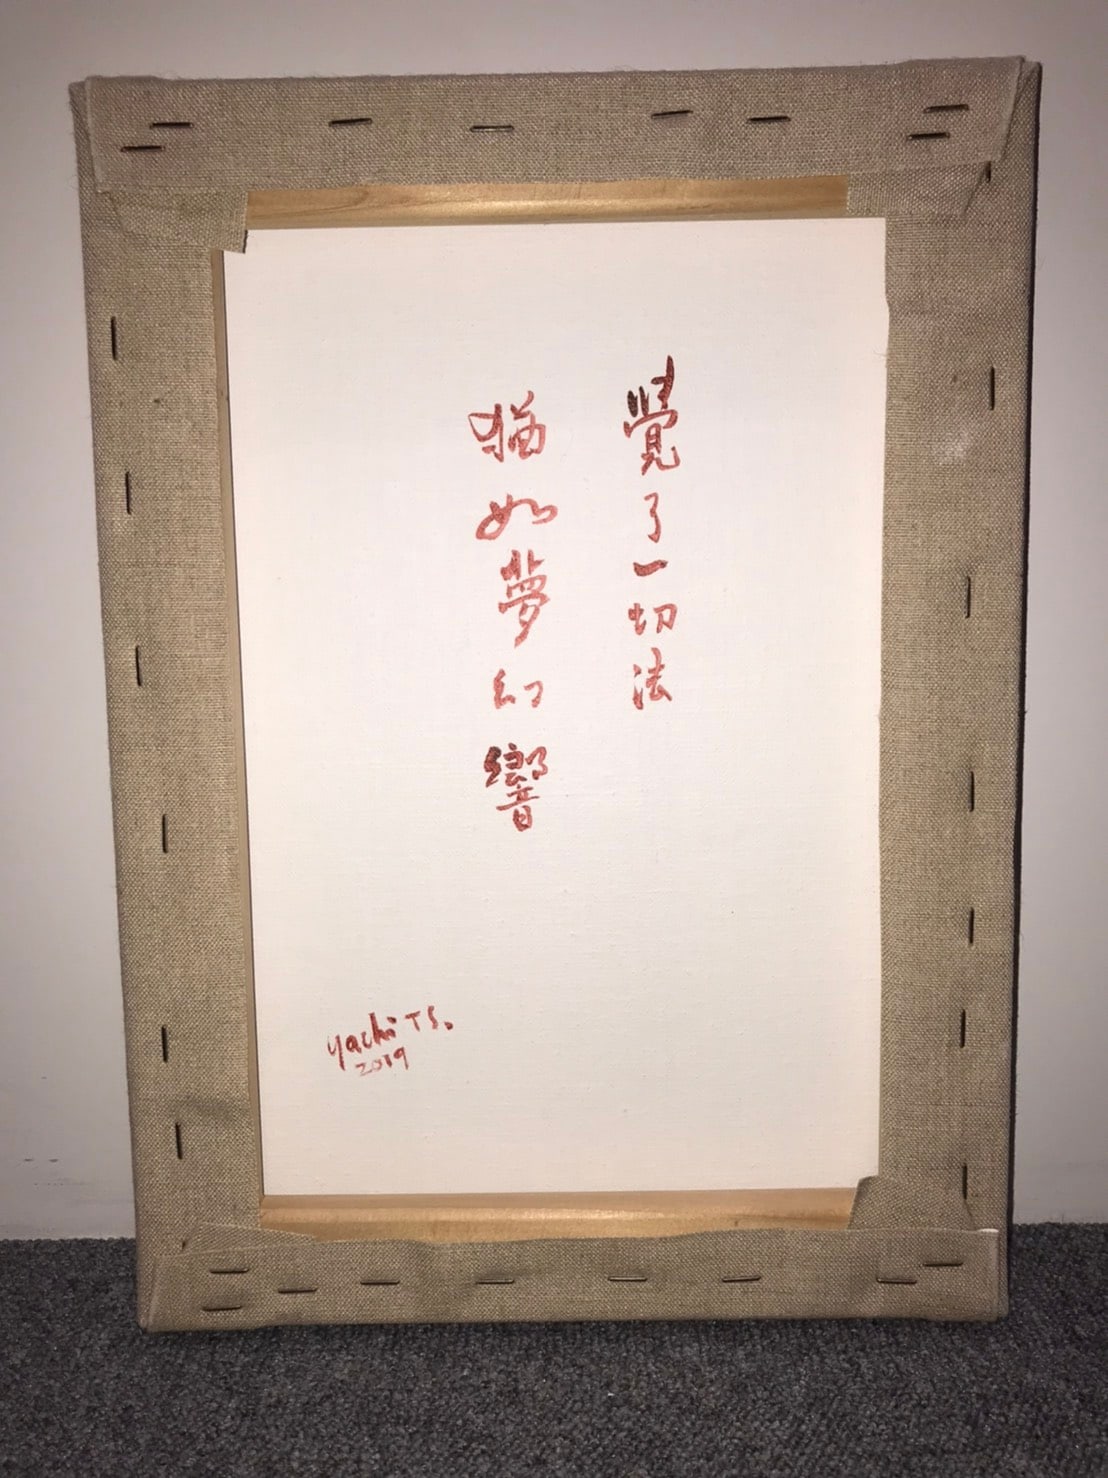 覺了一切法
猶如夢幻響
yachi TS.
2019